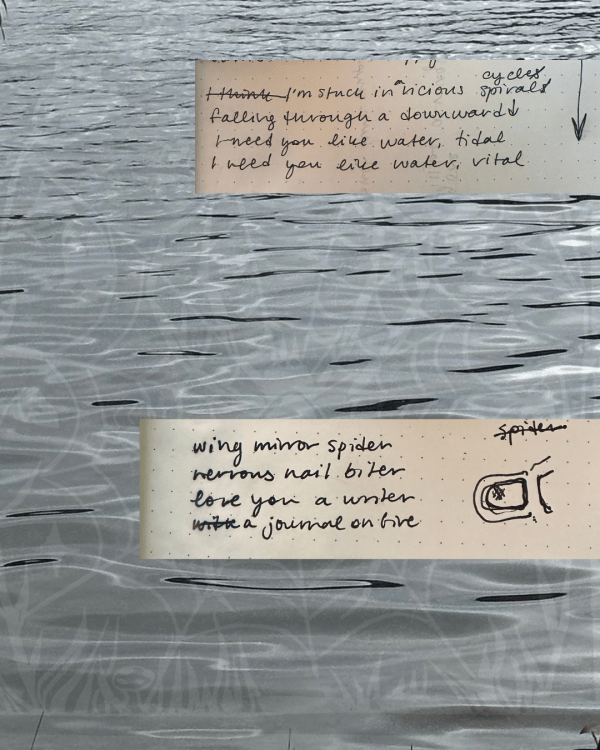 cycles
I think I'm stuck in vicious spirals
falling through a downward
I need you like water, tidal
I need you like water, vital
wing mirror spider
spider
nervous nail biter
love you a writer
with a journal on fire